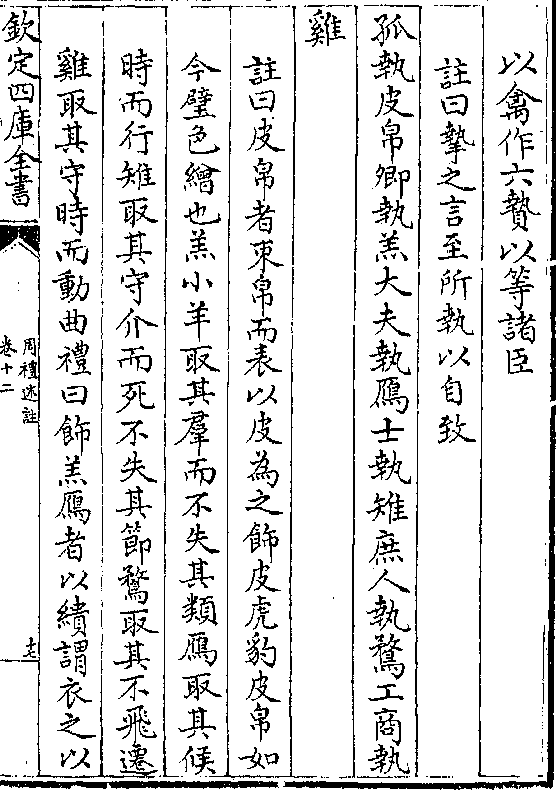 以禽作六贄以等諸臣
註曰摯之言至所執以自致
孤執皮帛卿執羔大夫執鴈士執雉庶人執鶩工商執
雞
註曰皮帛者束帛而表以皮為之飾皮虎豹皮帛如
今璧色繒也羔小羊取其羣而不失其類鴈取其候
時而行雉取其守介而死不失其節鶩取其不飛遷
雞取其守時而動曲禮曰飾羔鴈者以繢謂衣之以
欽定四庫全書
周禮述註
卷十二
十七